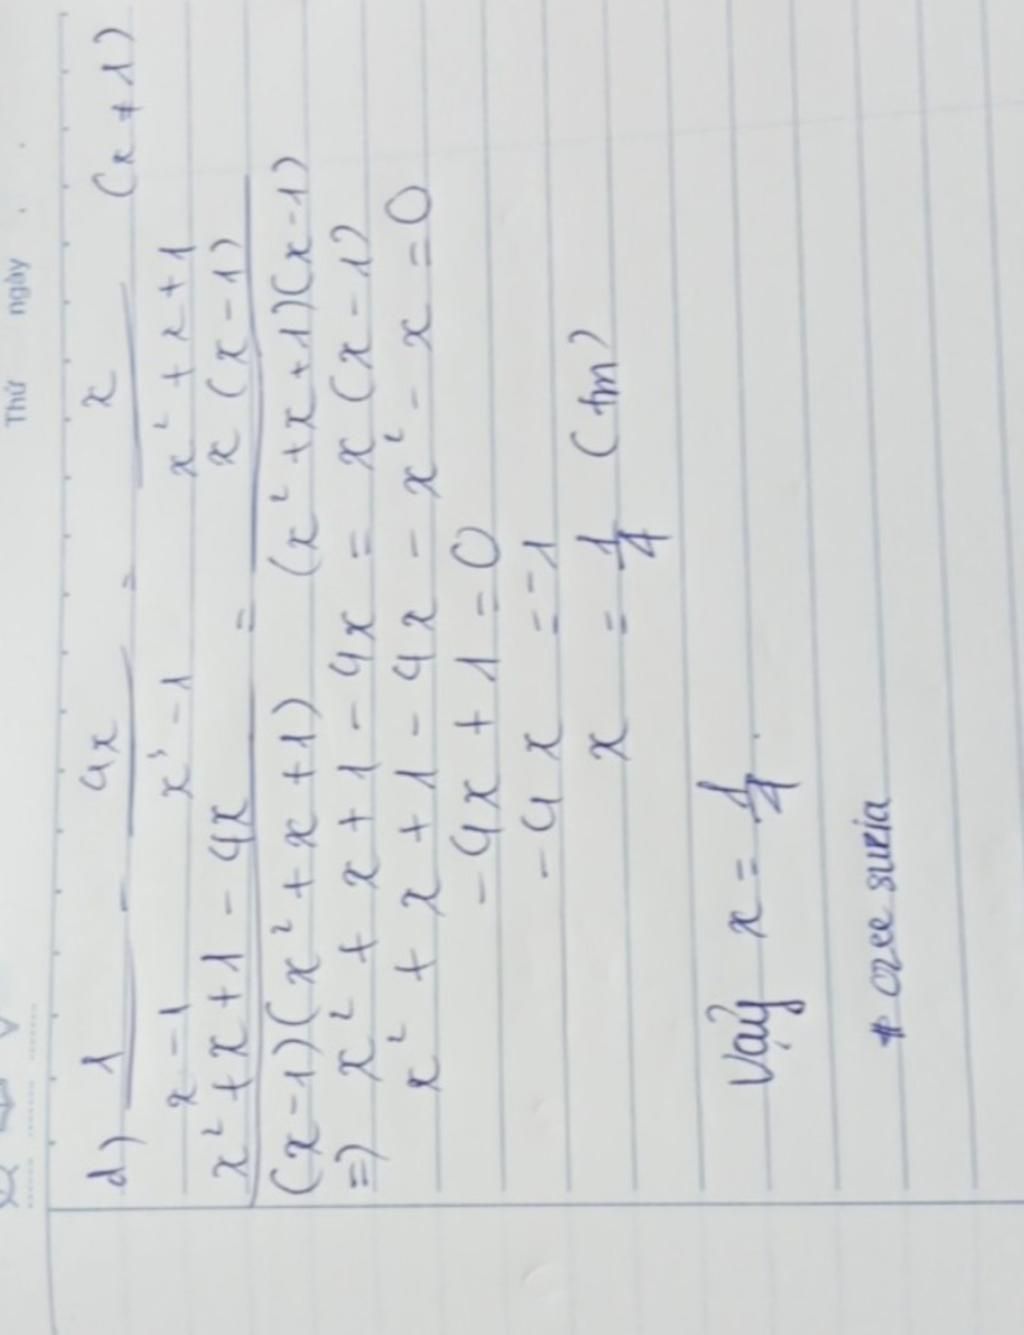 Thứ ngày
d) 1/(x - 1) - 4x/(x³ - 1) = x/(x² + x + 1) (x ≠ 1)
(x² + x + 1 - 4x)/((x - 1)(x² + x + 1)) = x(x - 1)/((x² + x + 1)(x - 1))
=) x² + x + 1 - 4x = x(x - 1)
x² + x + 1 - 4x - x² - x = 0
-4x + 1 = 0
-4x = -1
x = 1/4 (tm)
Vậy x = 1/4.